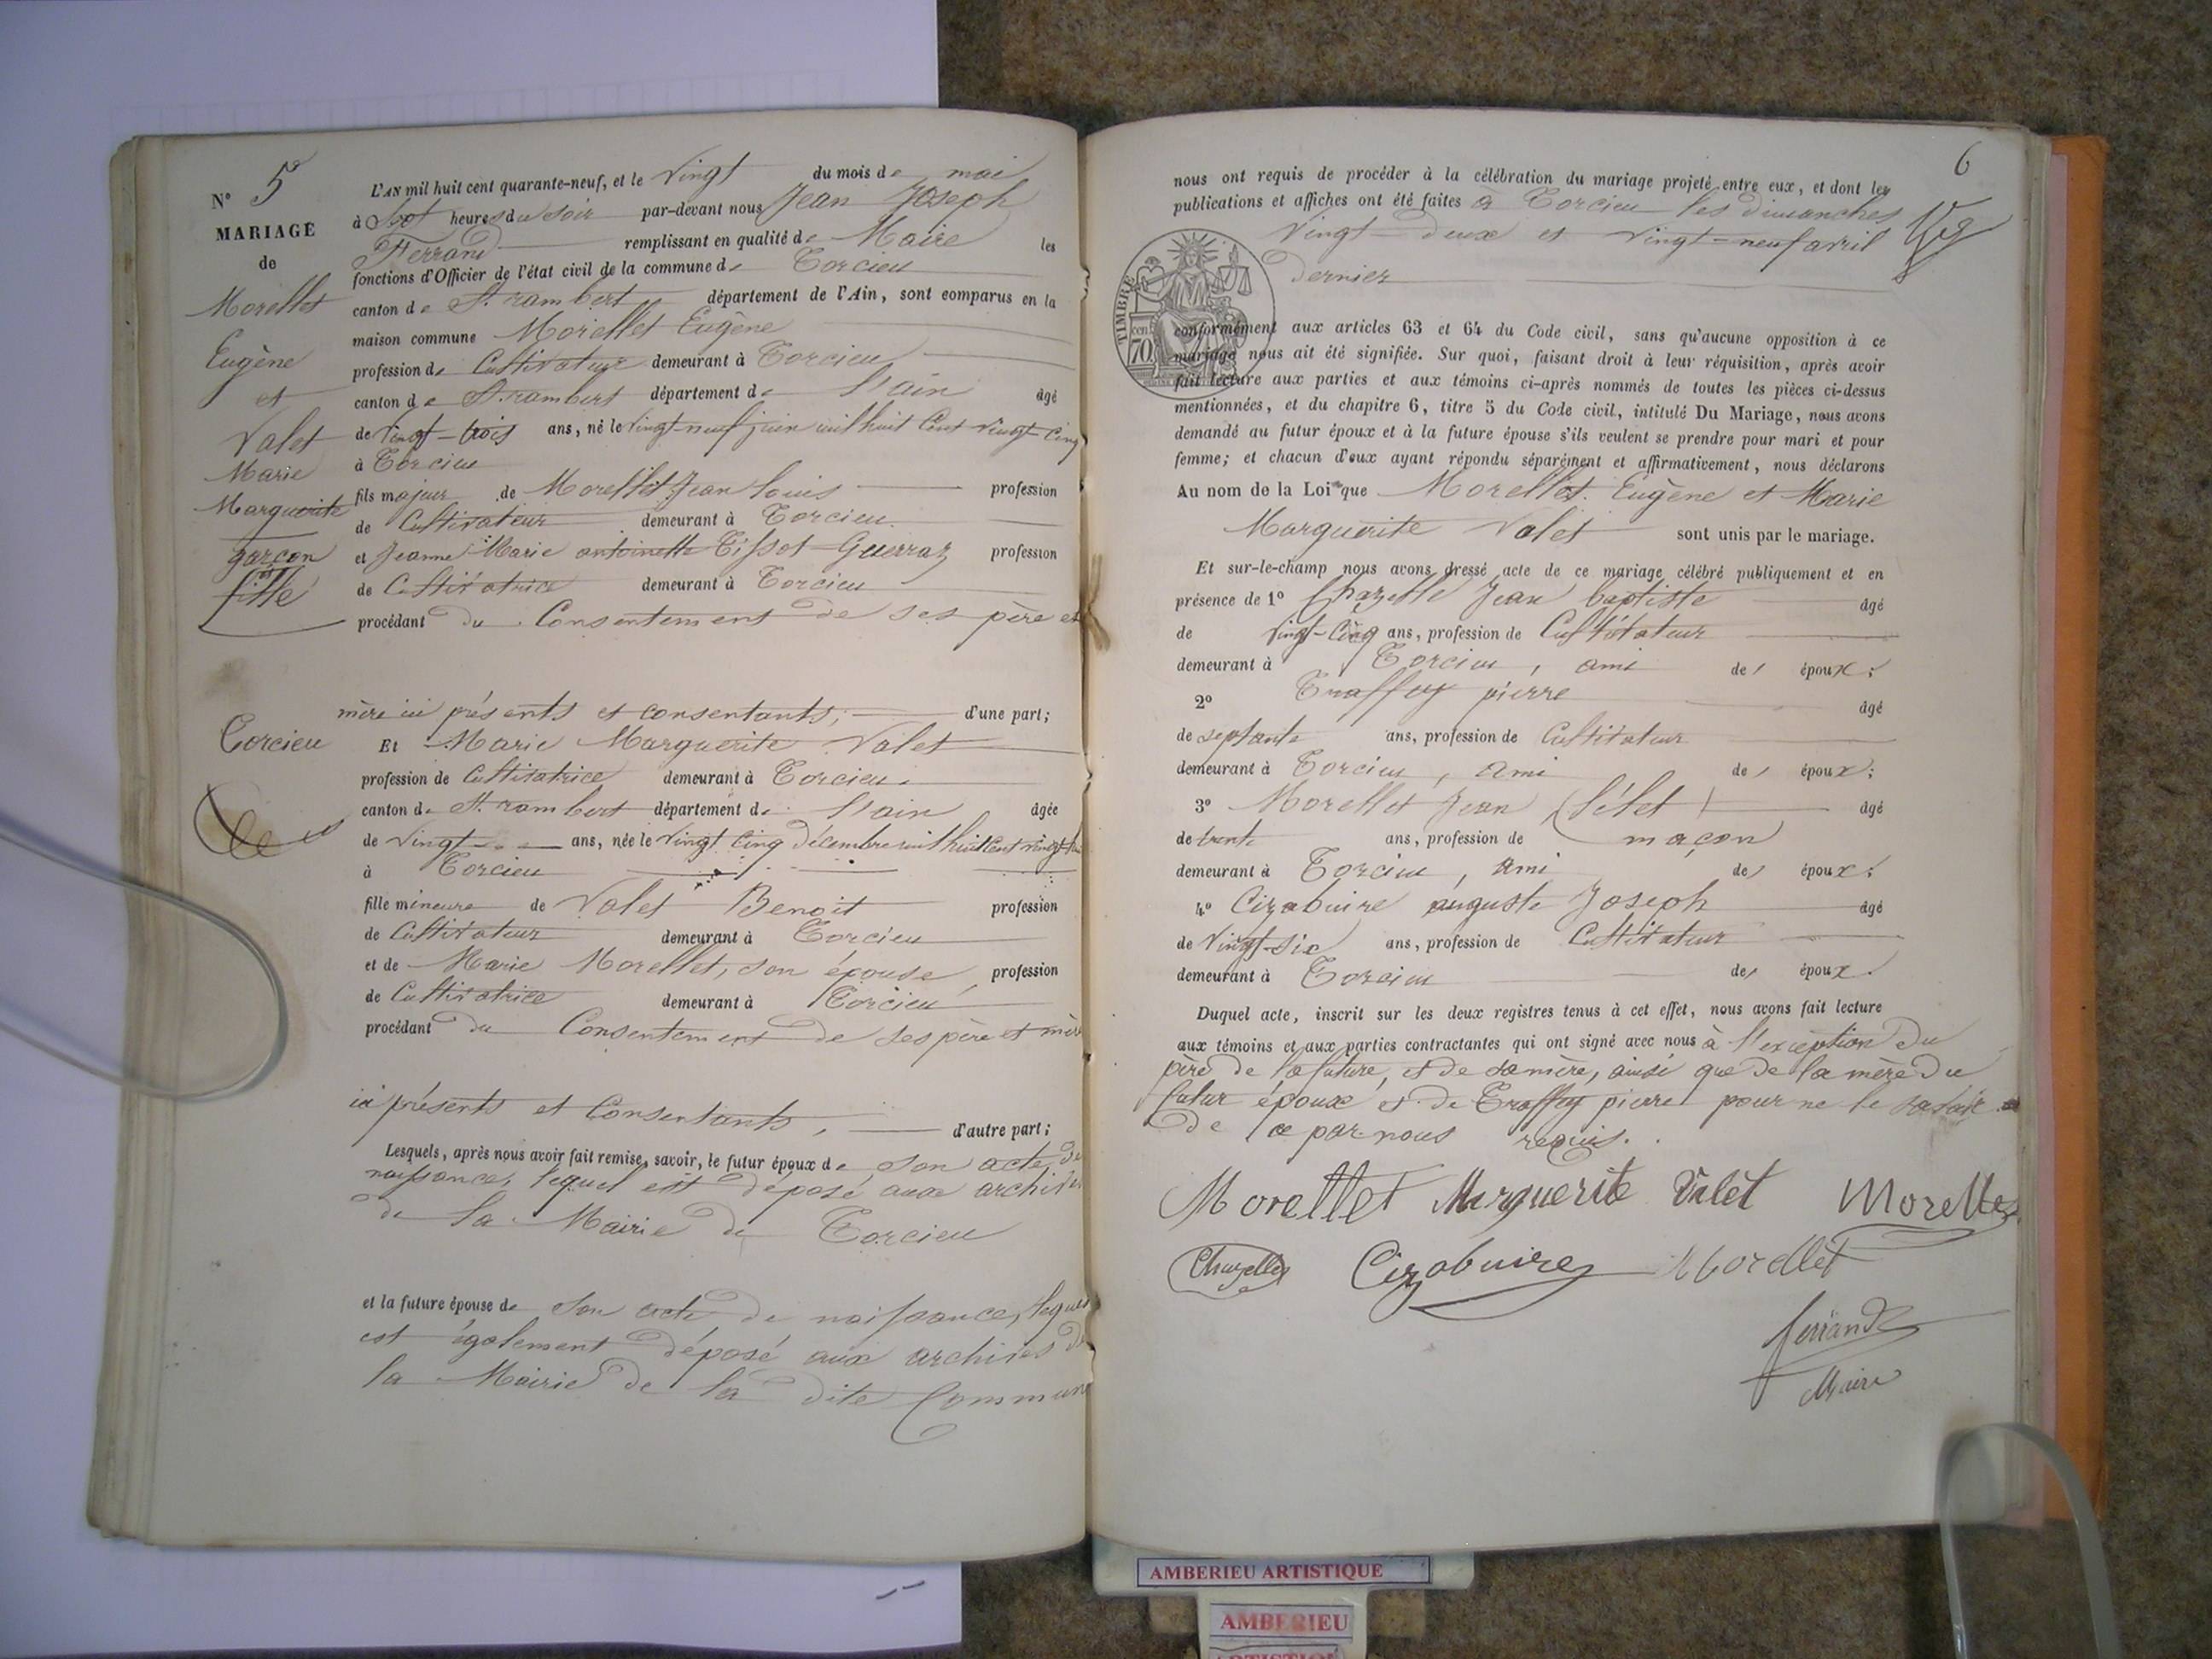 N° 5
MARIAGE
de
Morellet
Eugène
et
Valet
Marie
Marguerite
garçon
et
fille
Torcieu
L'AN mil huit cent quarante-neuf, et le Vingt du mois de mai
à Sept heures du soir par-devant nous Jean Joseph
Ferrand remplissant en qualité de Maire les
fonctions d'Officier de l'état civil de la commune de Torcieu
canton de St. rambert département de l'Ain, sont comparus en la
maison commune Morellet Eugène
profession de Cultivateur demeurant à Torcieu
canton de St. rambert département de l'ain âgé
de Vingt-trois ans, né le Vingt-neuf juin mil huit Cent vingt-Cinq
à Torcieu
fils majeur de Morellet Jean louis profession
de Cultivateur demeurant à Torcieu
et Jeanne Marie antoinette Tissot-Guerraz profession
de Cultivatrice demeurant à Torcieu
procédant du Consentement de ses père et
mère ici présents et consentants, d'une part;
Et Marie Marguerite Valet
profession de Cultivatrice demeurant à Torcieu
canton de St. rambert département de l'ain âgée
de Vingt ans, née le Vingt Cinq décembre mil huit Cent
à Torcieu
fille mineure de Valet Benoit profession
de Cultivateur demeurant à Torcieu
et de Marie Morellet, son épouse, profession
de Cultivatrice demeurant à Torcieu
procédant du Consentement de ses père et mère
ici présents et Consentants, d'autre part;
Lesquels, après nous avoir fait remise, savoir, le futur époux de son acte de
naissance, lequel est déposé aux archives
de la Mairie de Torcieu
et la future épouse de son acte de naissance, lequel
est également déposé aux archives de
la Mairie de la dite Commune
6
nous ont requis de procéder à la célébration du mariage projeté entre eux, et dont les
publications et affiches ont été faites à Torcieu les dimanches
Vingt-deux et vingt-neuf avril
dernier
TIMBRE
70 cent
conformément aux articles 63 et 64 du Code civil, sans qu'aucune opposition à ce
mariage nous ait été signifiée. Sur quoi, faisant droit à leur réquisition, après avoir
fait lecture aux parties et aux témoins ci-après nommés de toutes les pièces ci-dessus
mentionnées, et du chapitre 6, titre 5 du Code civil, intitulé Du Mariage, nous avons
demandé au futur époux et à la future épouse s'ils veulent se prendre pour mari et pour
femme; et chacun d'eux ayant répondu séparément et affirmativement, nous déclarons
Au nom de la Loi que Morellet Eugène et Marie
Marguerite Valet sont unis par le mariage.
Et sur-le-champ nous avons dressé acte de ce mariage célébré publiquement et en
présence de 1° Chazelle Jean baptiste âgé
de Vingt-Cinq ans, profession de Cultivateur
demeurant à Torcieu, ami des époux;
2° Traffay pierre âgé
de septante ans, profession de Cultivateur
demeurant à Torcieu, ami des époux;
3° Morellet Jean âgé
de trente ans, profession de maçon
demeurant à Torcieu, ami des époux;
4° Cizabuire auguste Joseph âgé
de Vingt-six ans, profession de Cultivateur
demeurant à Torcieu des époux.
Duquel acte, inscrit sur les deux registres tenus à cet effet, nous avons fait lecture
aux témoins et aux parties contractantes qui ont signé avec nous à l'exception du
père de la future, et de sa mère, ainsi que de la mère du
futur époux et de Traffay pierre pour ne le savoir
de ce par nous requis.
Morellet Marguerite Valet Morellet
Chazelle Cizabuire Morellet
ferrand
Maire
AMBERIEU ARTISTIQUE
AMBERIEU
ARTISTIQUE